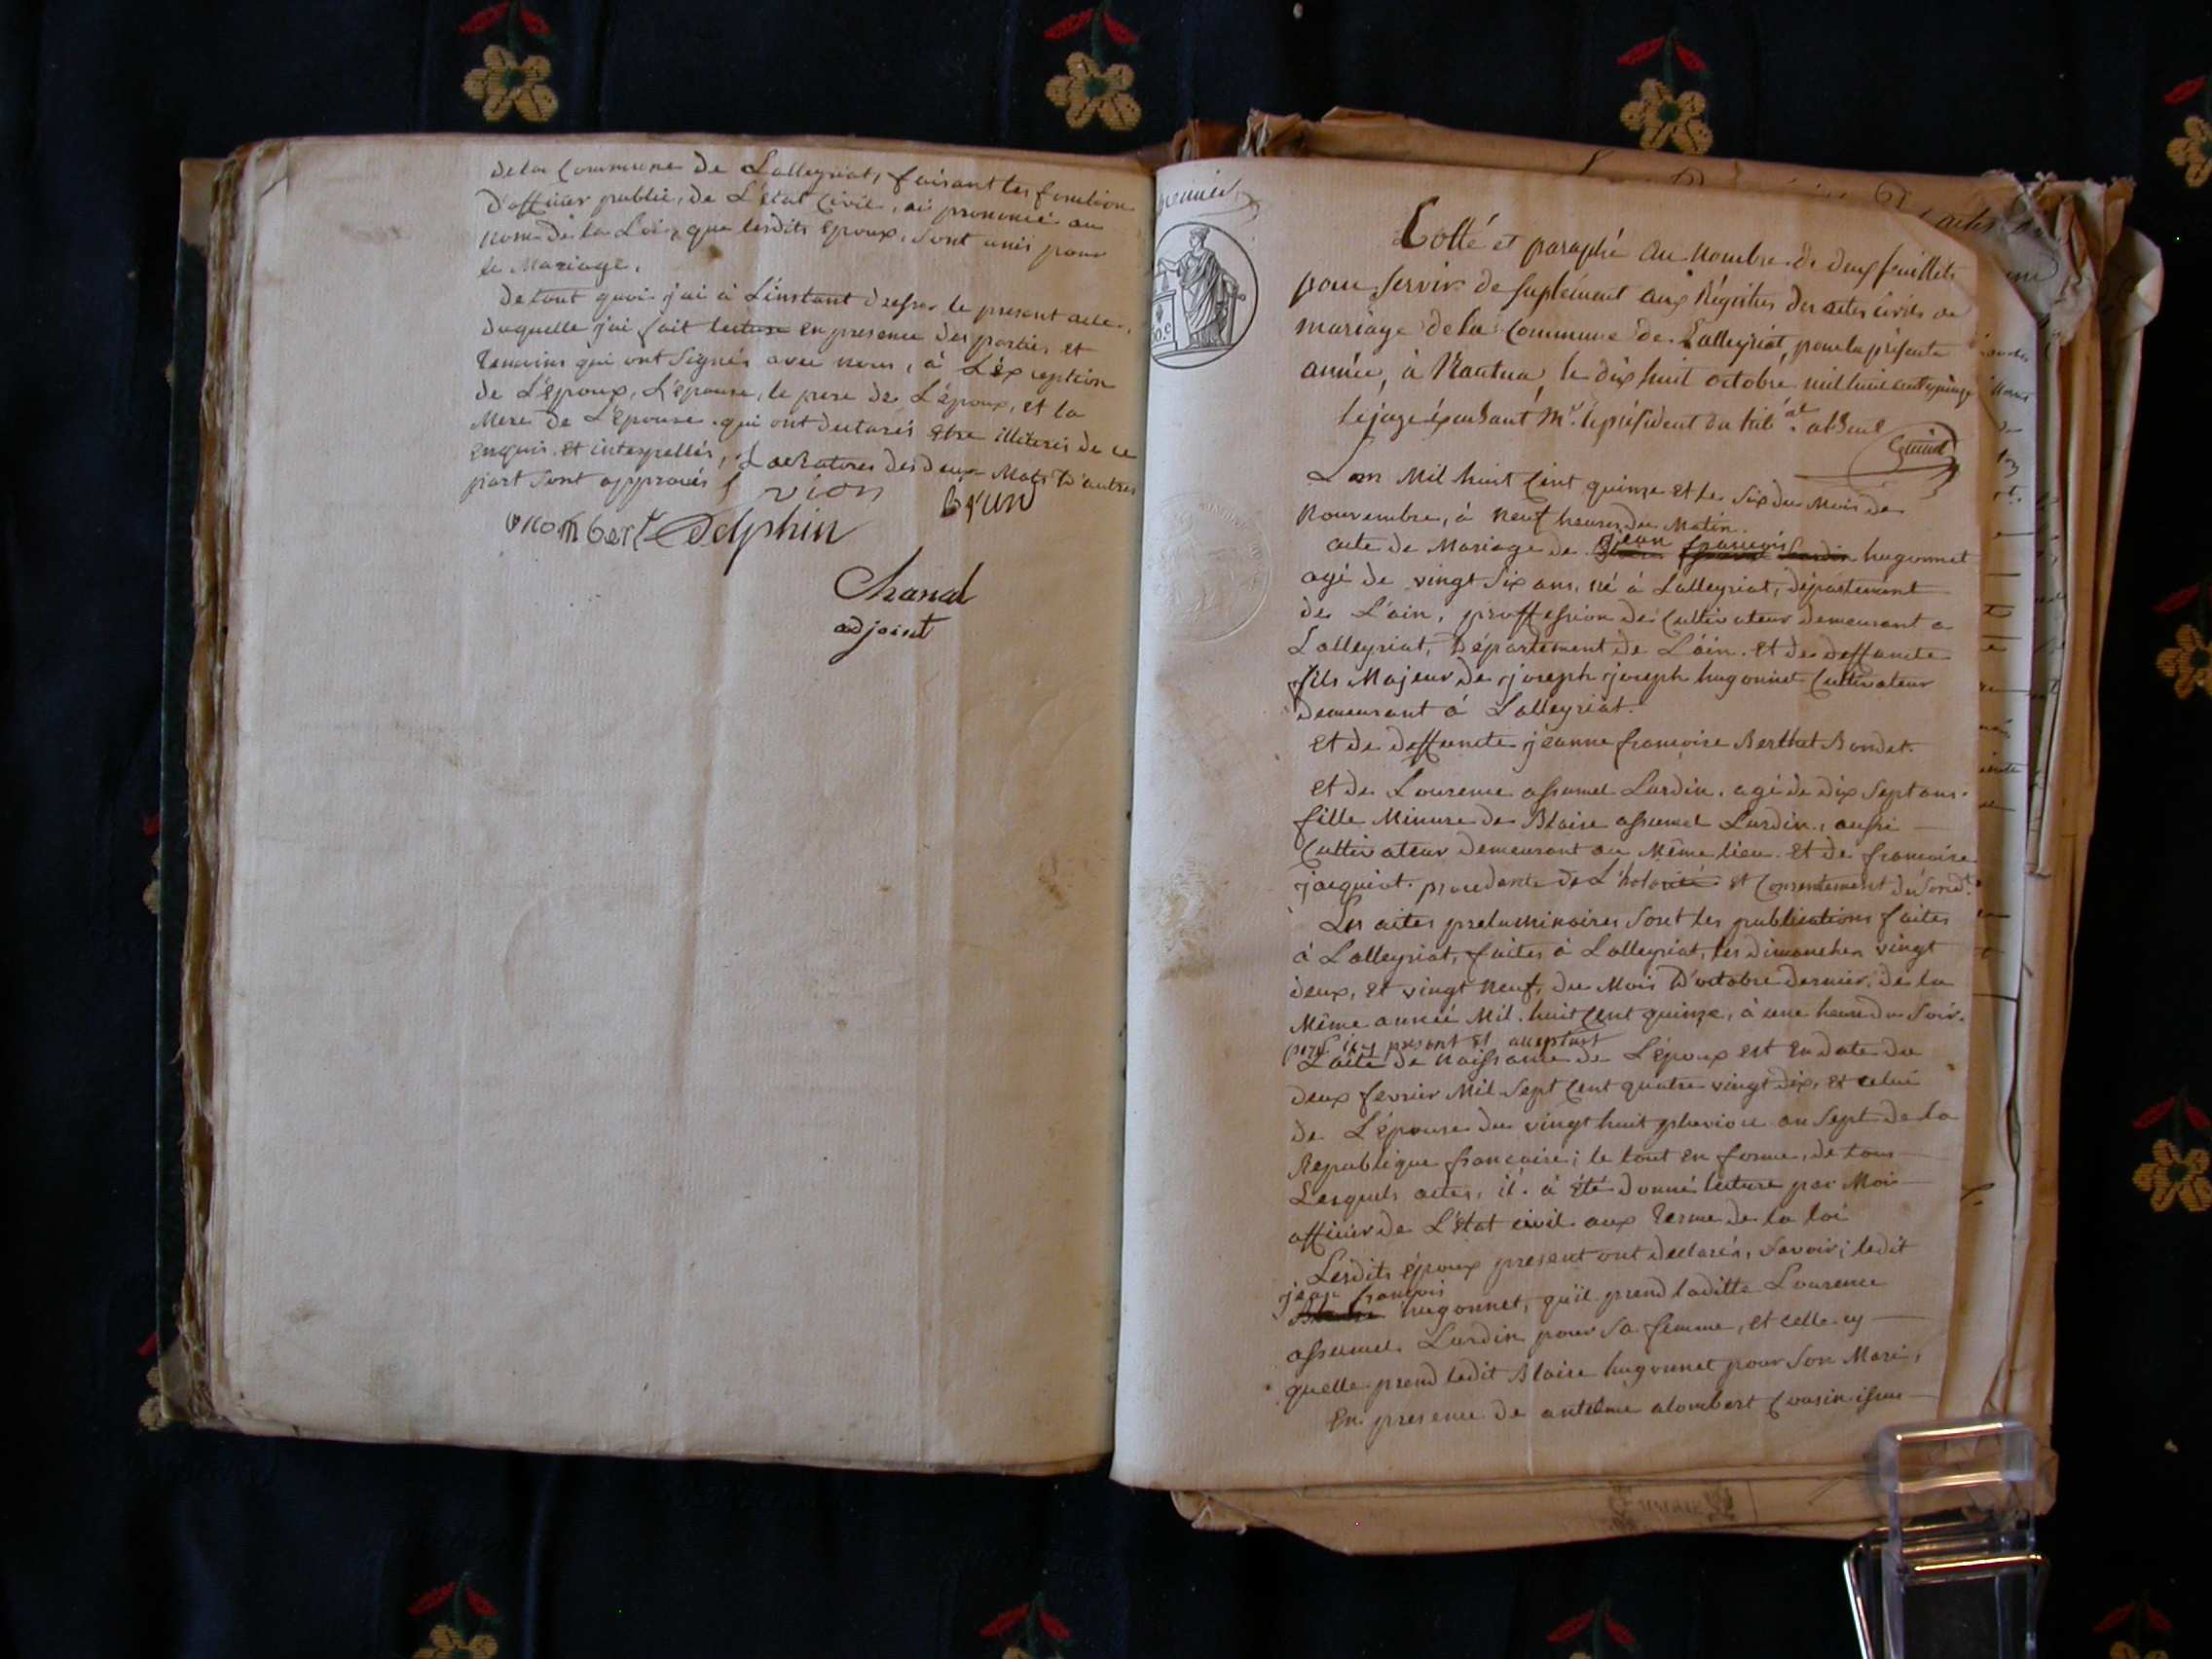 de la Commune de Lalleyriat, faisant les fonction
D'officier public, de L'état Civil, ai prononcé au
Nom de la Loi, que lesdits Epoux, Sont unis pour
le Mariage.
De tout quoi j'ai à L'instant dresser le present acte,
duquelle j'ai fait lecture En presence des parties et
temoins qui ont Signés avec nous, à L'éxception
de L'époux, L'épouse, le pere de L'époux, et la
Mere de L'épouse. qui ont declarés Etre illiterés de ce
Enquis et interpellés, Les Ratures des deux Mots D'autres
part Sont approuvés
vion
brun
Delphin
Chanal
adjoint
premier
Cotté et paraphé au Nombre de deux feuillets
pour servir de suplément aux Régistres des actes civils de
mariage de la Commune de Lalleyriat, pour la présente
année, à Nantua, le dix huit octobre mil huit cent quinze
le juge éxcusant Mr. le président du trib.al absent
L'an Mil huit Cent quinze et le Six du Mois de
Nouvembre, à Neuf heures du Matin.
acte de Mariage de jean françois hugonnet
agé de vingt Six ans, né à Lalleyriat, département
de L'ain, proffession de Cultivateur demeurant a
Lalleyriat, Département de L'ain. Et de deffuncte
fils Majeur de joseph joseph hugonnet Cultivateur
demeurant à Lalleyriat.
Et de deffuncte jeanne françoise Berthet Bondet.
Et de Lourence assumel Lurdin. agé de dix Sept ans.
fille Minure de Blaise assumel Lurdin, aussi
Cultivateur demeurant au Même lieu. Et de françoise
jacquiot. procedante de L'hotorité et Consentement de Sond.t
Les actes preluminaires Sont les publications faites
à Lalleyriat, faites à Lalleyriat, les dimanches vingt
deux, et vingt Neuf, du Mois D'octobre dernier, de la
Même année Mil huit Cent quinze, à une heure du Soir.
pere icy present et acceptant
L'acte de Naissance de L'époux est En date du
deux fevrier Mil Sept Cent quatre vingt dix, et celui
de L'épouse du vingt huit pluviou an Sept de la
Republique françoise; le tout en forme, de tous
Lesquels actes, il à été donné lecture par Moi
officier de L'état civil aux terme de la loi
Lesdits époux present ont declarés, Savoir; ledit
jean françois
hugonnet, qu'il prend laditte Lourence
assumel Lurdin pour Sa femme, et celle cy
quelle prend ledit Blaise hugonnet pour Son Mari,
En presence de antelme alombert Cousin issue